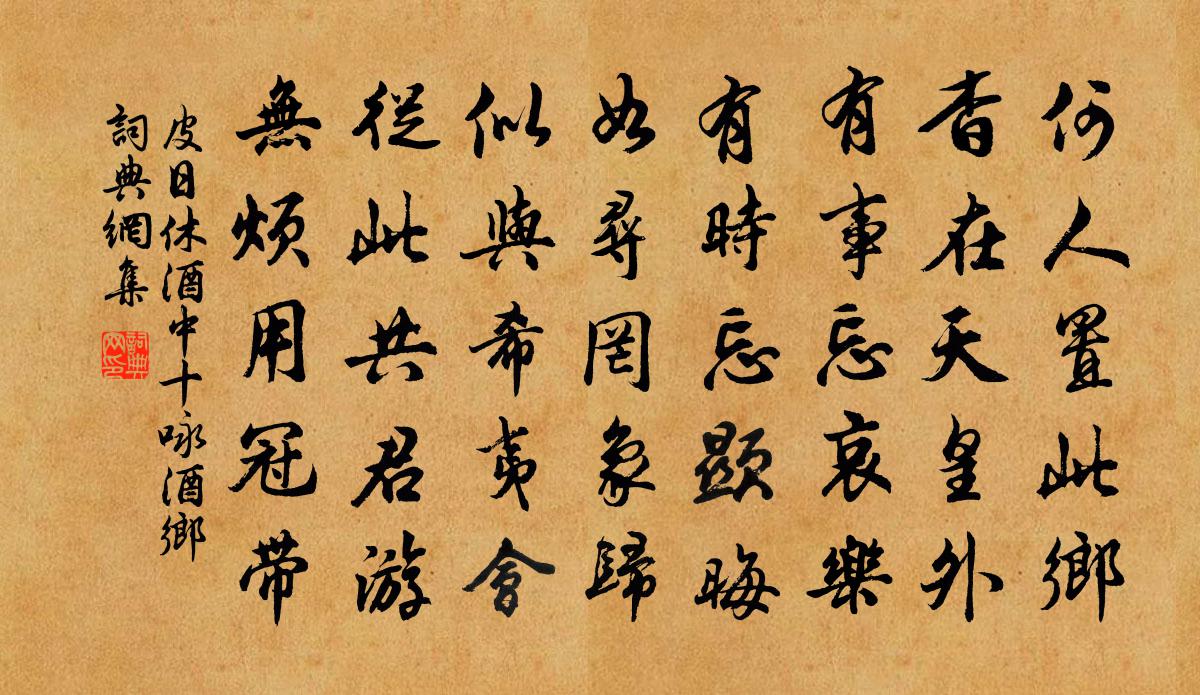 何人置此鄉
杳在天皇外
有事忘哀樂
有時忘顯晦
如尋罔象歸
似與希夷會
從此共君游
無煩用冠帶
皮日休酒中十咏酒鄉
詞典網集
詞典
网印